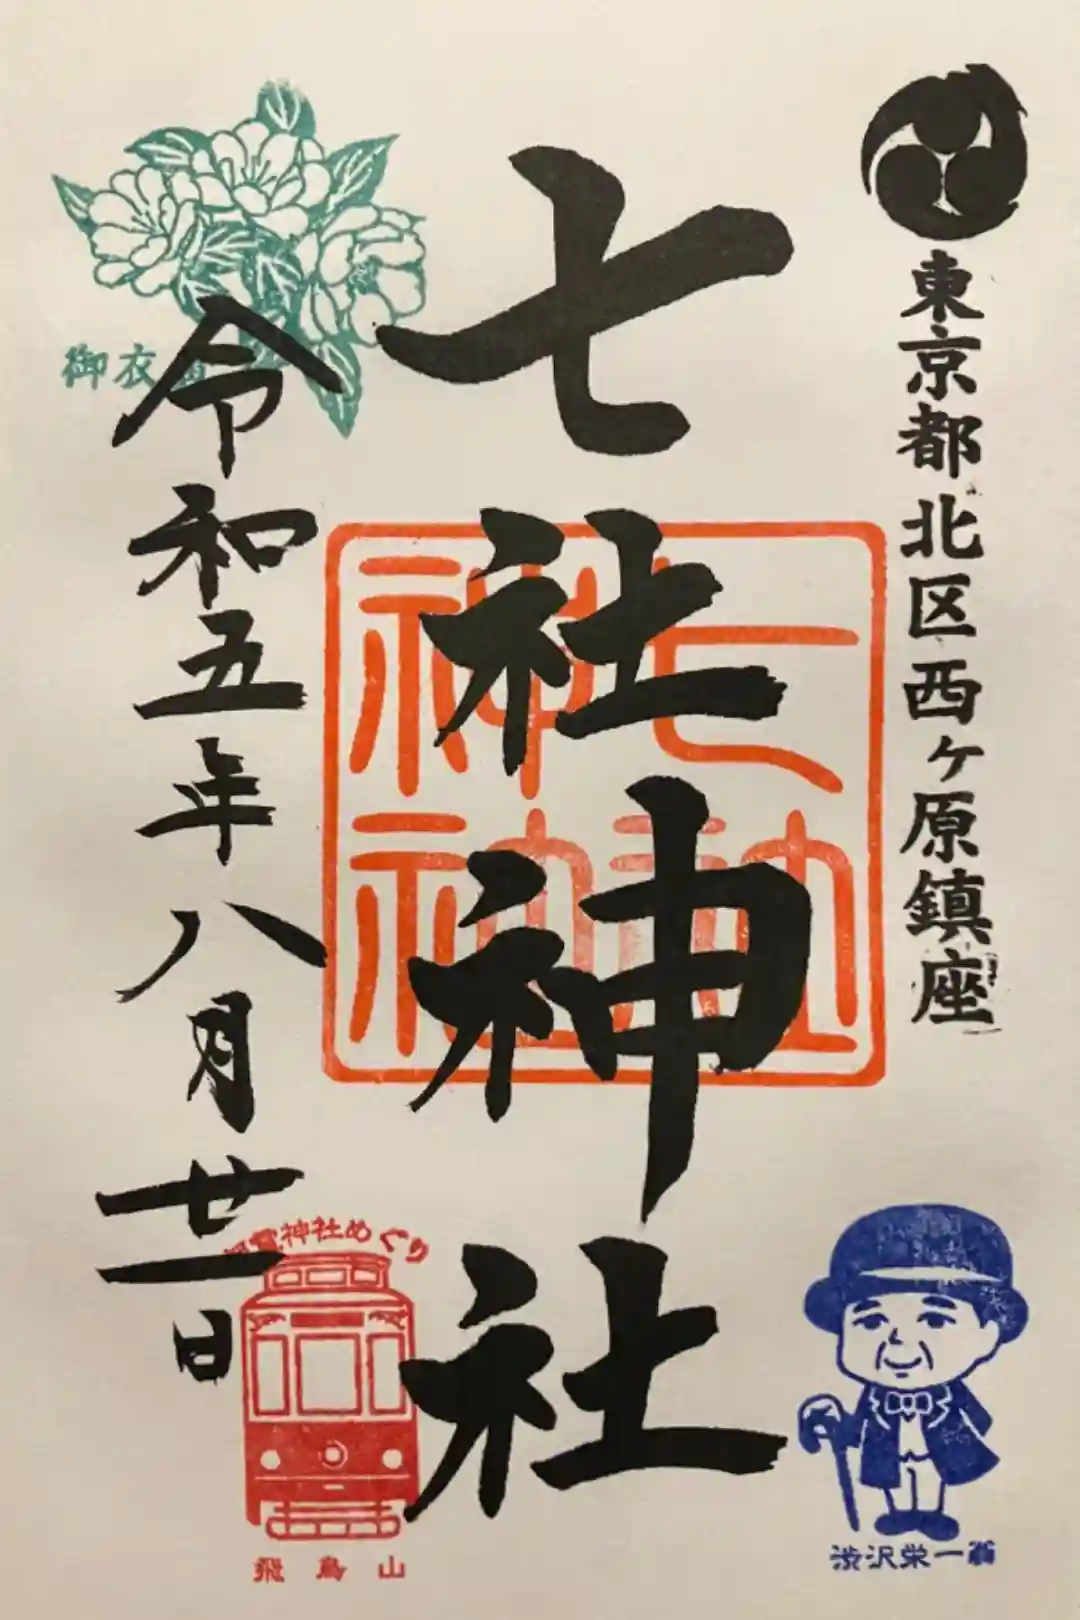 東京都北区西ヶ原鎮座
七社神社
七社神社
令和五年八月廿一日
御衣
神社めぐり
飛鳥山
渋沢栄一翁